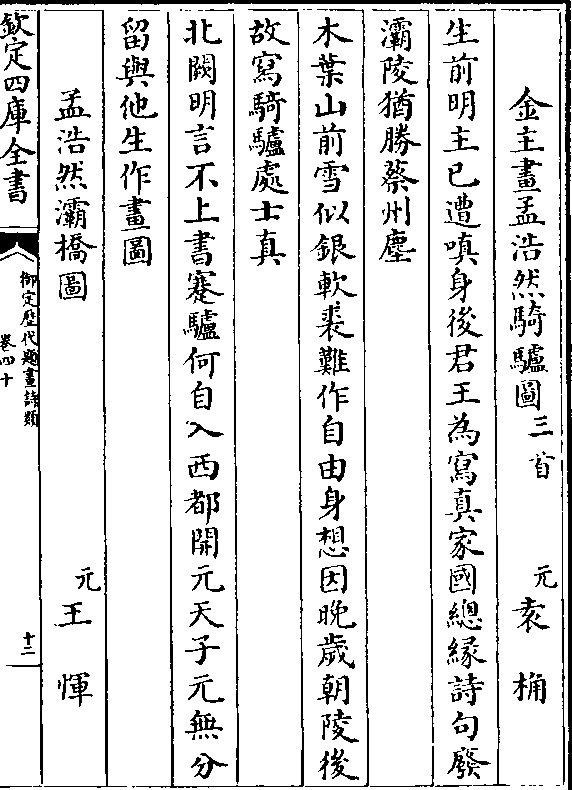 金主畫孟浩然騎驢圖三首　元　袁桷
生前明主已遭嗔身後君王為寫真家國總緣詩句廢
灞陵猶勝蔡州塵
木葉山前雪似銀軟裘難作自由身想因晚歲朝陵後
故寫騎驢處士真
北闕明言不上書蹇驢何自入西都開元天子元無分
留與他生作畫圖
孟浩然灞橋圖　元　王惲
欽定四庫全書
御定歷代題畫詩類
卷四十
十二